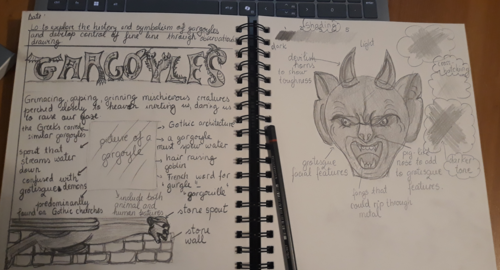 Date:
LO to explore the history and symbolism of gargoyles
and develop control of fine line through observational
drawing
GARGOYLES
Grimacing, gaping, grinning muchierous creatures
perched closely to heaven inviting us, daring us
to raise our gaze
the Greeks carved
similar gargoyles
spout that
streams water
down
confused with
grotesques demons
predominantly
found on Gothic churches
picture of a
gargoyle
include both
animal and
human features
Gothic architecture
a gargoyle
must spew water
hair raising
goblin
French word for
gurgle
gargouille
stone spout
stone
wall
shading
dark
light
devilish
horns
to show
toughness
grotesque
facial features
fangs that
could rip through
metal
need to add
grotesque
features
darker
tone